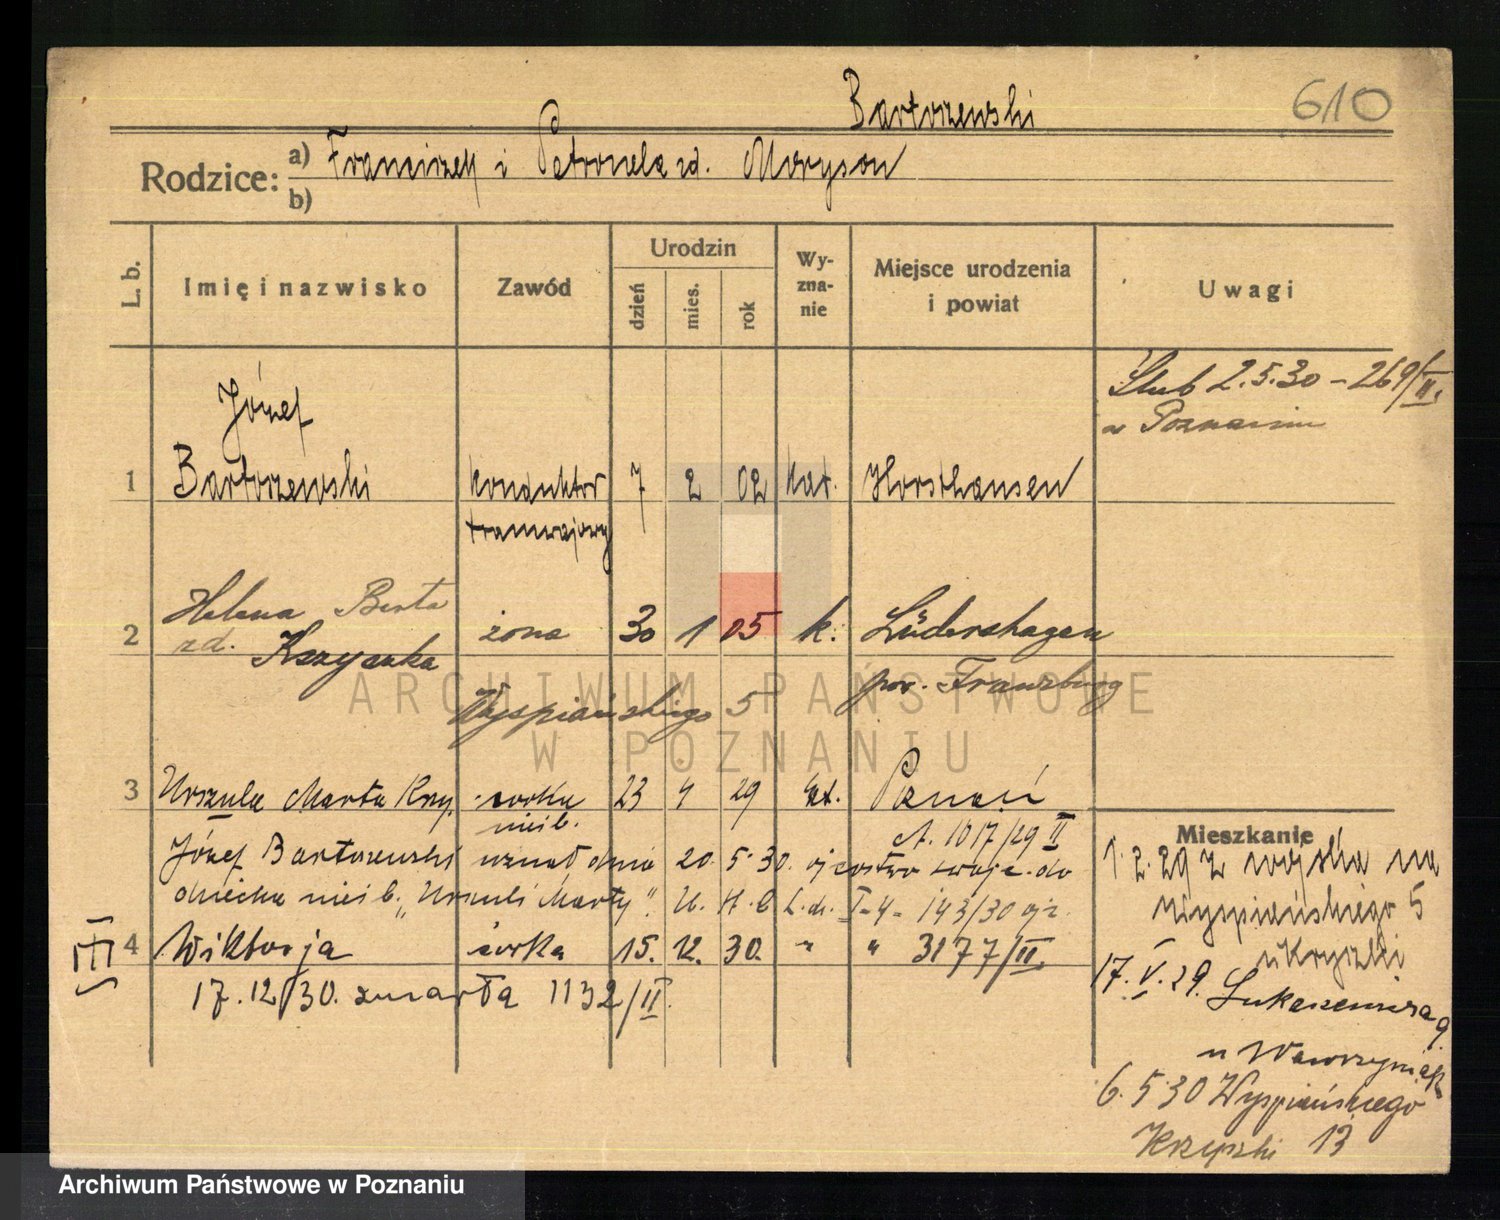 Bartoszewski
610
Rodzice: a) Franciszek i Petronela zd. Moryson
b)
L. b.
Imię i nazwisko
Zawód
Urodzin
dzień
mies.
rok
Wy-
zna-
nie
Miejsce urodzenia
i powiat
Uwagi
Ślub 2.5.30 – 269/II.
w Poznaniu
Józef
1 Bartoszewski konduktor 7 2 02 kat. Horsthausen
tramwajowy
Helena Berta
2 zd. żona 30 1 05 k. Lüdershagen
pow. Franzburg
Wyspiańskiego 5
3 Urszula Marta Krzy. córka 23 4 29 kat. Poznań
nieśb. A. 1017/29 II
Józef Bartoszewski uznał dnia 20. 5. 30. ojcostwo swoje do
dziecka nieśb. „Urszuli Marty". 143/30
III
4 Wiktorja córka 15. 12. 30. " " 3177/II.
17.12.30. zmarła 1132/II.
Mieszkanie
1.2.29 z wojska na
Wyspiańskiego 5
u
17.V.29. Łukaszewicza 9
u Wawrzyniak
6.5.30 Wyspiańskiego
13
ARCHIWUM PAŃSTWOWE
W POZNANIU
Archiwum Państwowe w Poznaniu